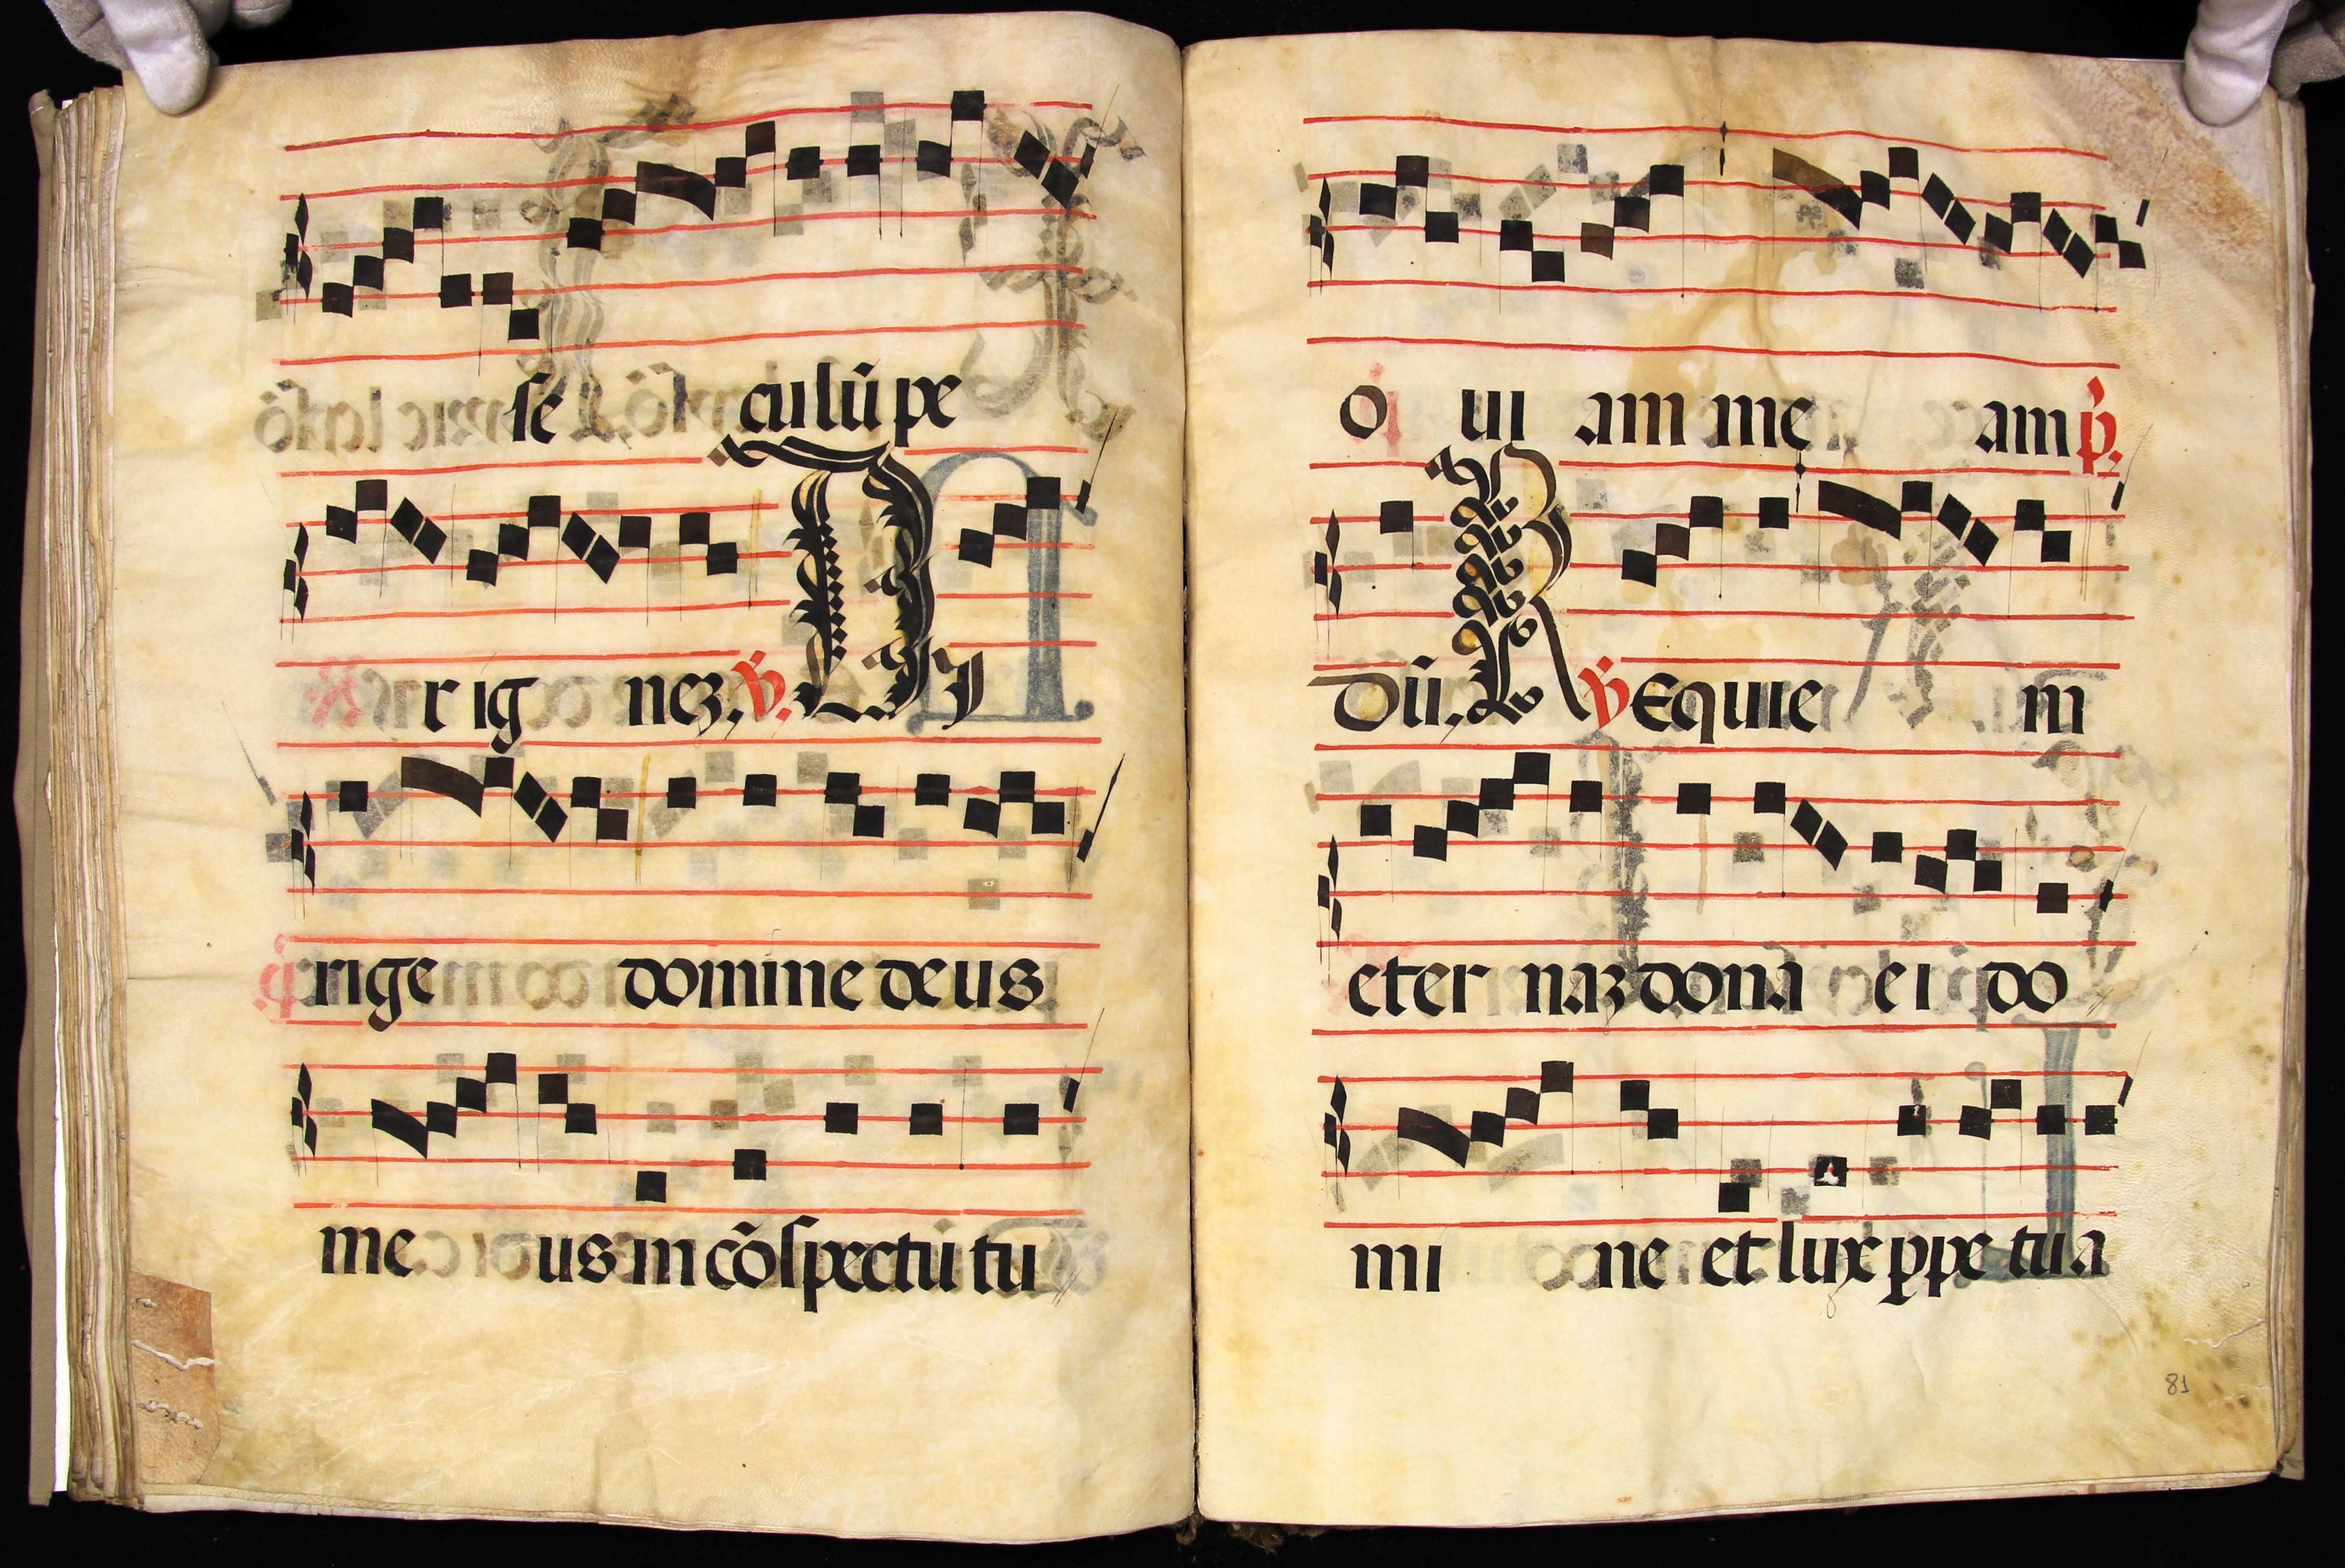 se culũ pe
r ig nez. ℣. Di
rige domine deus
me us in cõspectu tu
o ui am me am p̃.
dũ. R ℣ Equie m
eter naz dona ei do
mi ne et lux ꝑpe tua
81